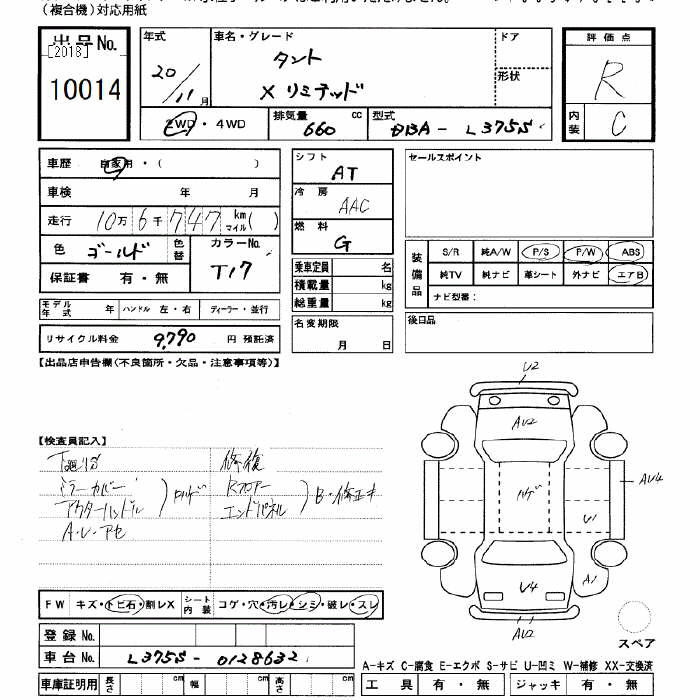 (複合機)対応用紙
出品No.
[2018]
10014
年式
20/11月
車名・グレード
タント
X リミテッド
ドア
形状
2WD・4WD
排気量 660 cc
型式 DBA-L375S
評価点
R
内装 C
車歴 自家用・( )
車検 年 月
走行 10万6千747 km マイル( )
色 ゴールド 色替
カラーNo. T17
保証書 有・無
モデル年式 年 ハンドル 左・右 ディーラー・並行
リサイクル料金 9,790 円 預託済
シフト AT
冷房 AAC
燃料 G
乗車定員 名
積載量 kg
総重量 kg
名変期限 月 日
セールスポイント
装備品
S/R 純A/W P/S P/W ABS
純TV 純ナビ 革シート 外ナビ エアB
ナビ型番:
後日品
【出品店申告欄(不良箇所・欠品・注意事項等)】
【検査員記入】
ミラーカバー
アウターハンドル
A・U・アセ
修復
Rフロアー
エンドパネル
B・修正キ
U2
AU2
ハゲ
AU4
U1
A1
U4
AU2
スペア
FW キズ・トビ石・割レX
シート内装 コゲ・穴・汚レ・シミ・破レ・スレ
登録No.
車台No. L375S-0128632
A-キズ C-腐食 E-エクボ S-サビ U-凹ミ W-補修 XX-交換済
車庫証明用 長さ cm 幅 cm 高さ cm
工具 有・無 ジャッキ 有・無